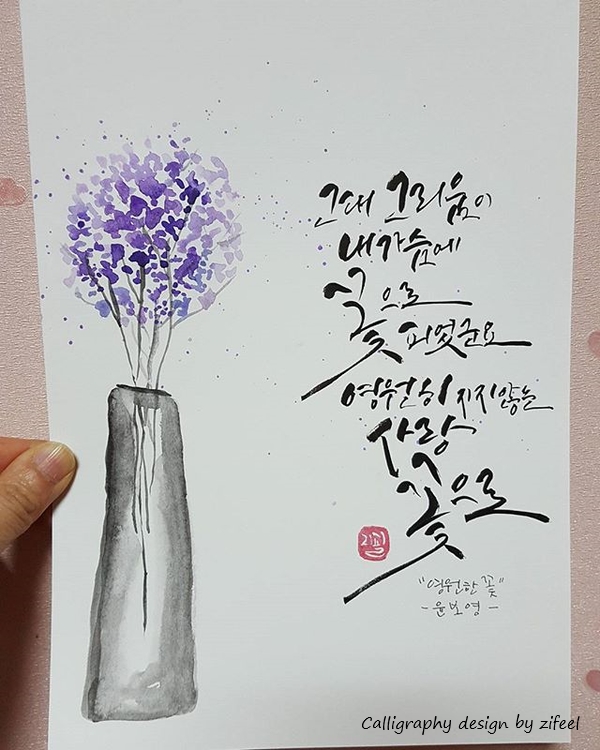 그대 그리움이
내가슴에
꽃으로
피었군요
영원히 지지않는
사랑
꽃으로
지필
"영원한 꽃"
- 윤보영 -
Calligraphy design by zifeel